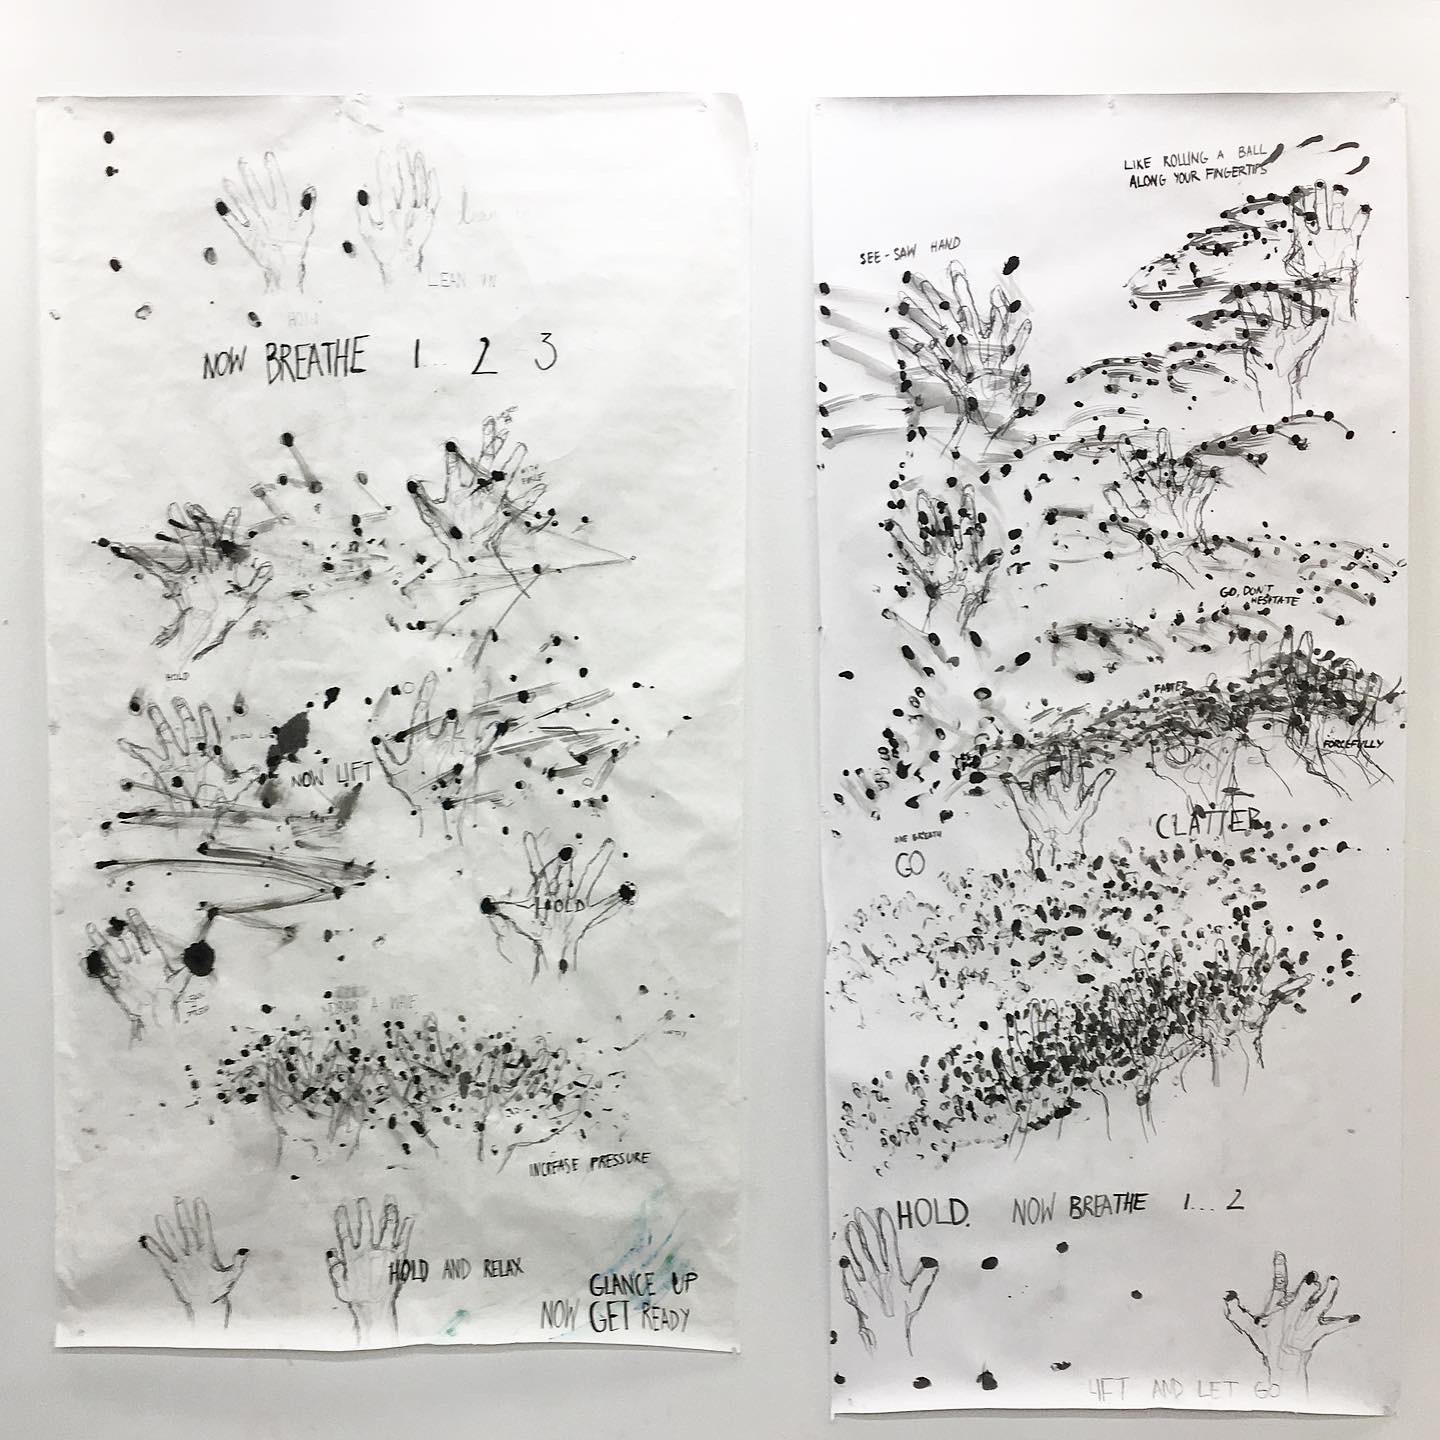 LEAN IN
HOLD
NOW BREATHE 1... 2 3
WITH
HOLD
NOW LIFT
HOLD
DRAW A WAVE
INCREASE PRESSURE
HOLD AND RELAX
GLANCE UP
NOW GET READY
LIKE ROLLING A BALL
ALONG YOUR FINGERTIPS
SEE-SAW HAND
GO, DON'T
HESITATE
FASTER
FORCEFULLY
CLATTER
ONE BREATH
GO
HOLD. NOW BREATHE 1... 2
LIFT AND LET GO